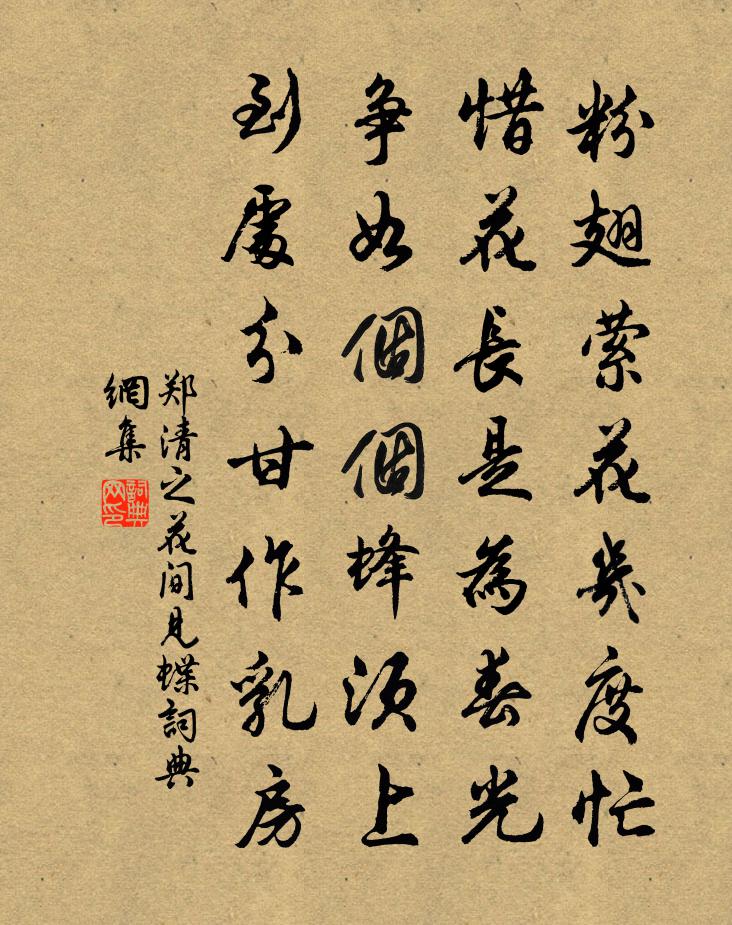 粉翅萦花幾度忙
惜花長是為春光
争如個個蜂須上
到處分甘作乳房
郑清之花间见蝶詞典
網集
詞典
网印